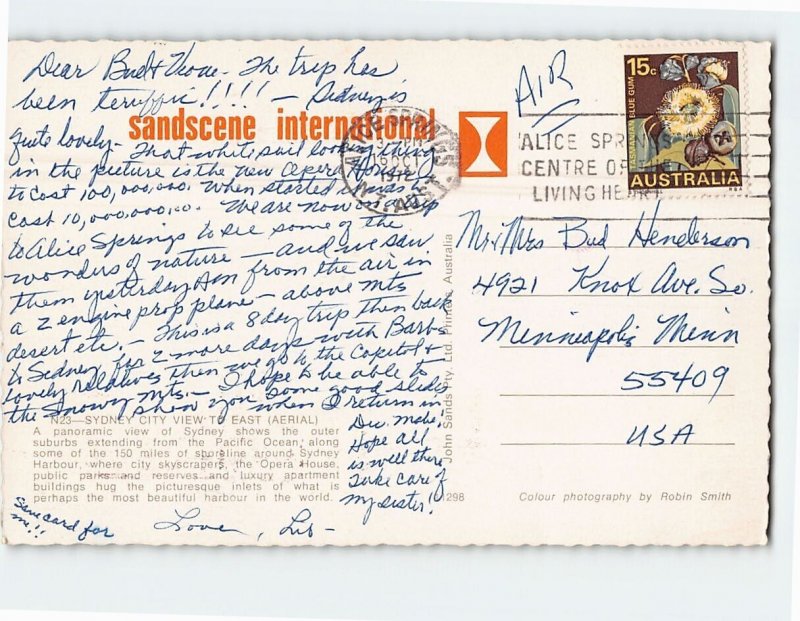 Dear Bud & Vione - The trip has
been terriffic!!!!! - Sidney is
quite lovely - That white sail looking thing
in the picture is the new Opera House,
to cost 100,000,000. When started it was to
cost 10,000,000.00. We are now on a trip
to Alice Springs to see some of the
wonders of nature - and we saw
them yesterday from the air in
a 2 engine prop plane - above mts
desert etc. - This is a 8 day trip then back
to Sidney for 2 more days with Barb's
lovely relatives then we go to the Capitol &
the Snowy Mts. - I hope to be able to
show you some good slides
when I return in
Dec. maybe -
Hope all
is well there
Take care of
my sister!
Save card for
me!!
Love, Lib -
sandscene international
N23—SYDNEY CITY VIEW TO EAST (AERIAL)
A panoramic view of Sydney shows the outer
suburbs extending from the Pacific Ocean, along
some of the 150 miles of shoreline around Sydney
Harbour, where city skyscrapers, the Opera House,
public parks and reserves and luxury apartment
buildings hug the picturesque inlets of what is
perhaps the most beautiful harbour in the world.
John Sands Pty. Ltd. Printers Australia
298
AIR
ALICE SPRINGS
16 OCT
ALICE SPRINGS
CENTRE OF THE
LIVING HEART
15c
TASMANIAN BLUE GUM
AUSTRALIA
Mr & Mrs Bud Henderson
4921 Knox Ave. So.
Minneapolis Minn
55409
USA
Colour photography by Robin Smith